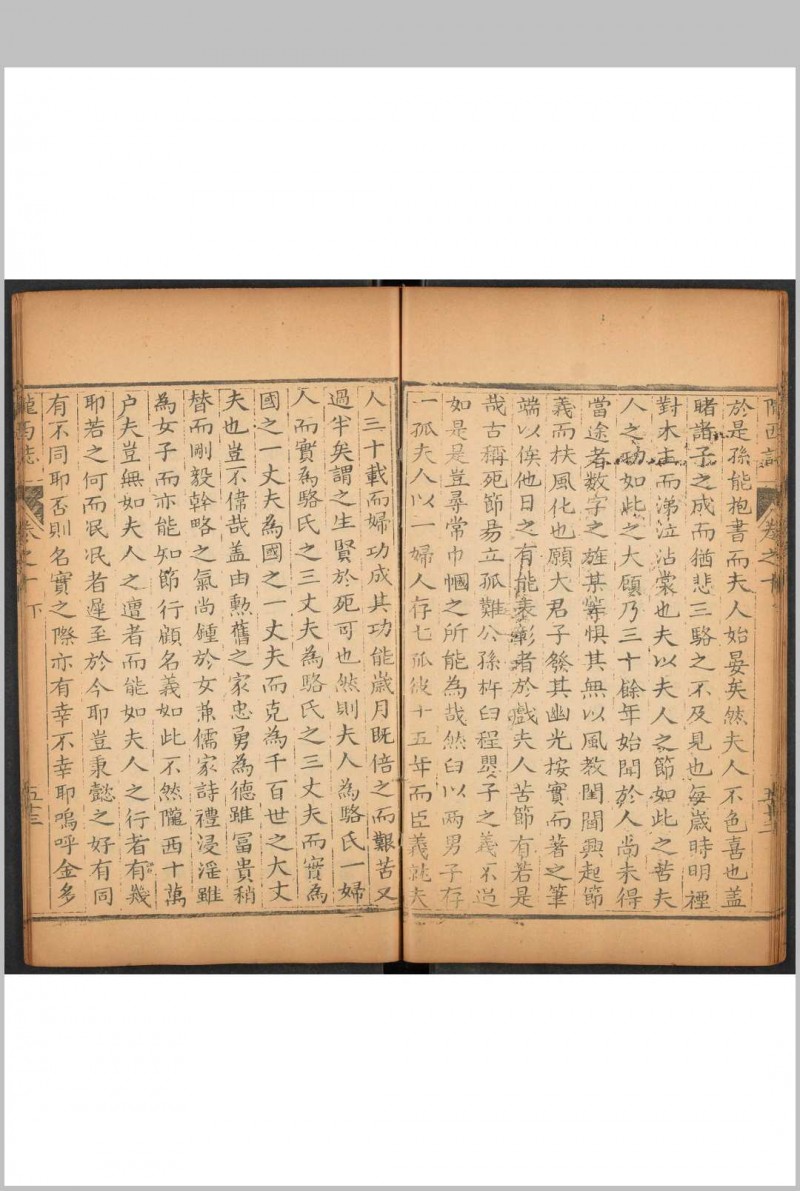 隴西志
卷之十
五十二
於是孫能抱書而夫人始晏矣然夫人不色喜也盖
睹諸子之成而猶悲三駱之不及見也每歲時明禋
對木主而涕泣沾裳也夫以夫人之節如此之苦夫
人之功如此之大願乃三十餘年始聞於人尚未得
當途者數字之旌某等惧其無以風教閨閫興起節
義而扶風化也願大君子發其幽光按實而著之筆
端以俟他日之有能表彰者於戲夫人苦節有若是
哉古稱死節昜立孤難公孫杵臼程嬰子之義不過
如是是豈尋常巾幗之所能為哉然臼以兩男子存
一孤夫人以一婦人存七孤彼十五年而臣義就夫
人三十載而婦功成其功能歲月既倍之而艱苦又
過半矣謂之生賢於死可也然則夫人為駱氏一婦
人而實為駱氏之三丈夫為駱氏之三丈夫而實為
國之一丈夫為國之一丈夫而克為千百世之大丈
夫也豈不偉哉盖由勲舊之家忠勇為德雖冨貴稍
替而剛毅幹略之氣尚鍾於女兼儒家詩禮浸淫雖
為女子而亦能知節行顧名義如此不然隴西十萬
户夫豈無如夫人之遭者而能如夫人之行者有幾
耶若之何而泯泯者遲至於今耶豈秉懿之好有同
有不同耶否則名實之際亦有幸不幸耶嗚呼金多
隴西志
卷之十
下
五十三